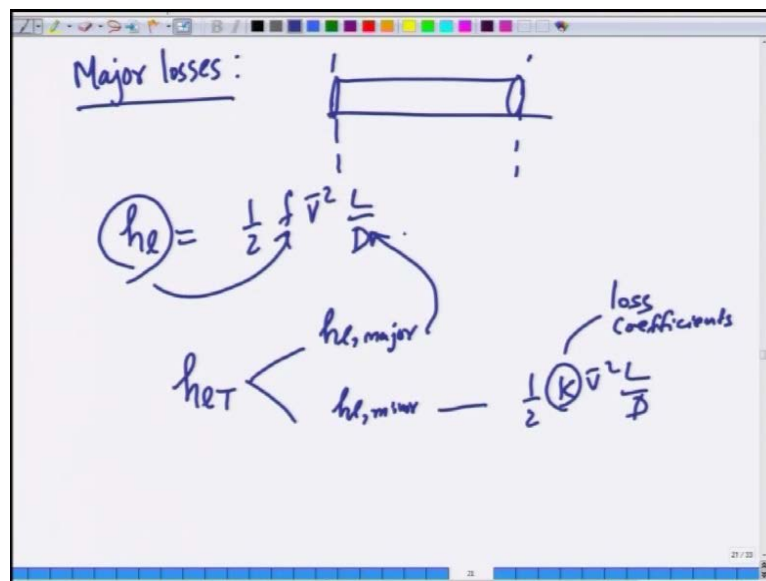 Major losses:
hl = 1/2 f V̄² L/D
hl, major
hlT
hl, minor — 1/2 K V̄² L/D
loss
coefficients
21 / 33
21